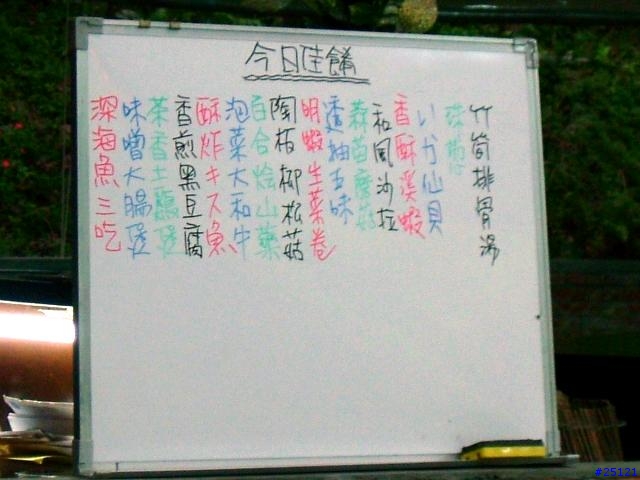 今日佳餚
竹筍排骨湯
いか仙貝
香酥溪蝦
和風沙拉
蒜苗磨菇
透抽五味
明蝦生菜卷
陶板柳松菇
百合燴山藥
泡菜大和牛
酥炸キス魚
香煎黑豆腐
茶香土雞煲
味噌大腸煲
深海魚三吃
#25121